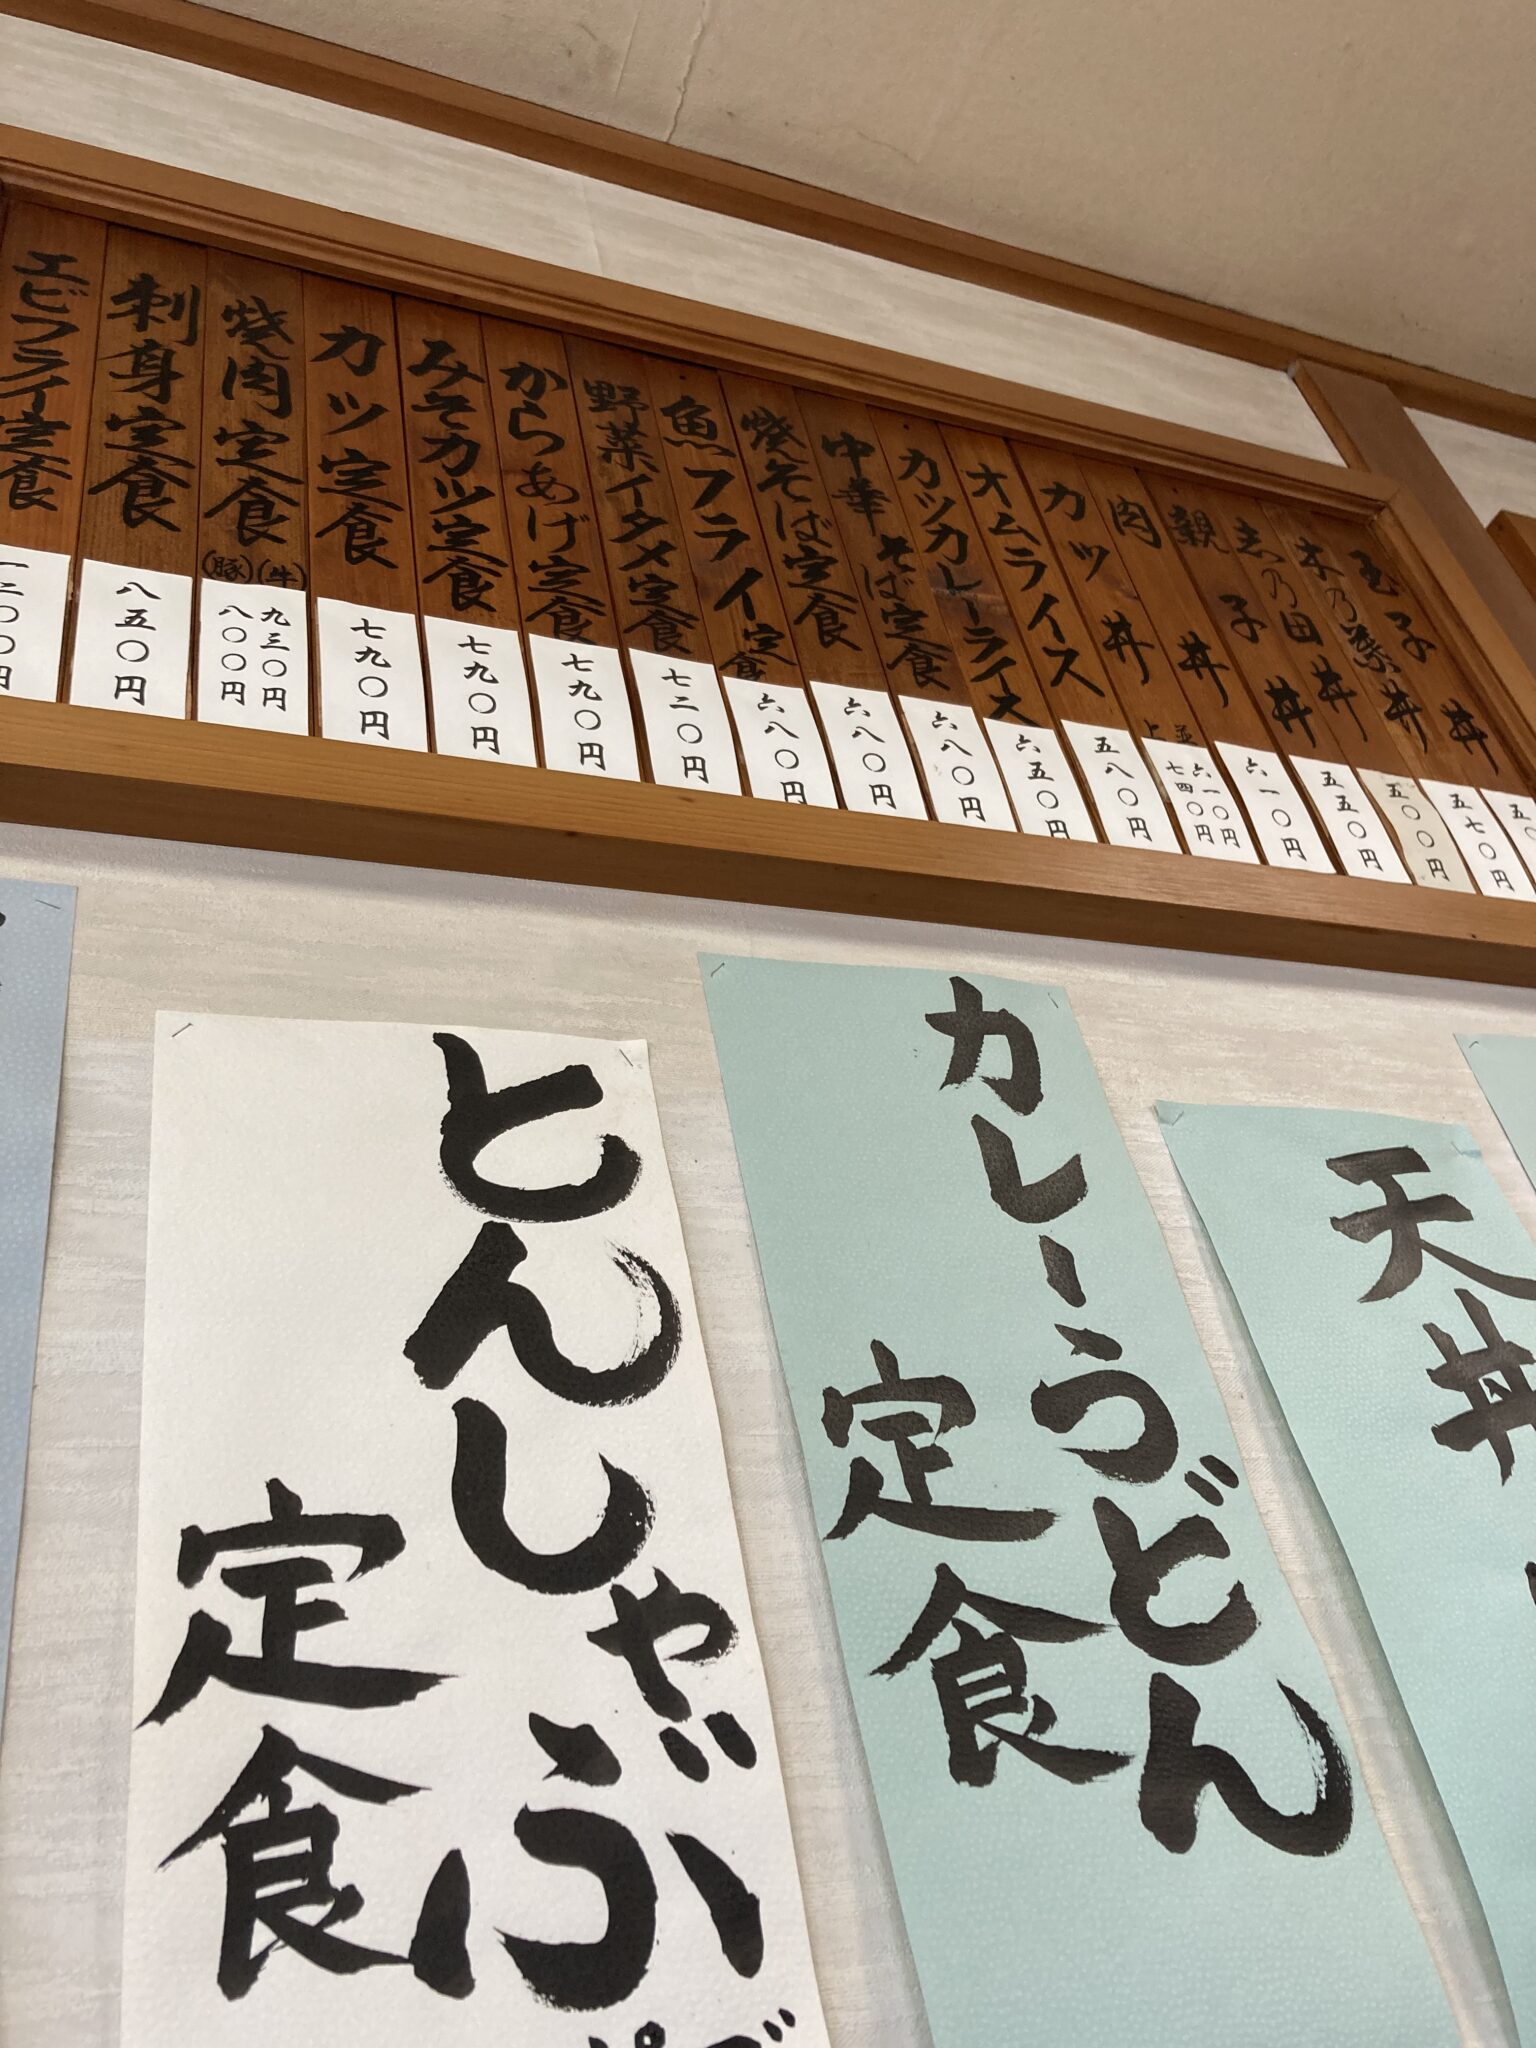 玉子丼
五〇
木乃葉丼
五七〇円
志乃田丼
五〇〇円
親子丼
五五〇円
肉丼
六一〇円
カツ丼
並 六一〇円
上 七四〇円
オムライス
五八〇円
カツカレーライス
六五〇円
中華そば定食
六八〇円
焼そば定食
六八〇円
魚フライ定食
六八〇円
野菜イタメ定食
七二〇円
からあげ定食
七九〇円
みそカツ定食
七九〇円
カツ定食
七九〇円
焼肉定食
(牛) 九三〇円
(豚) 八〇〇円
刺身定食
八五〇円
エビフライ定食
一二〇〇円
天丼
カレーうどん
定食
とんしゃぶ
定食